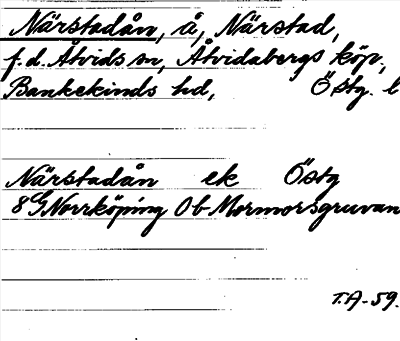 Närstadån, å, Närstad,
f.d. Åtvids sn, Åtvidabergs köp.,
Bankekinds hd, Östg. l
Närstadån ek Östg
8G Norrköping Ob Mormorsgruvan
T.A-59.